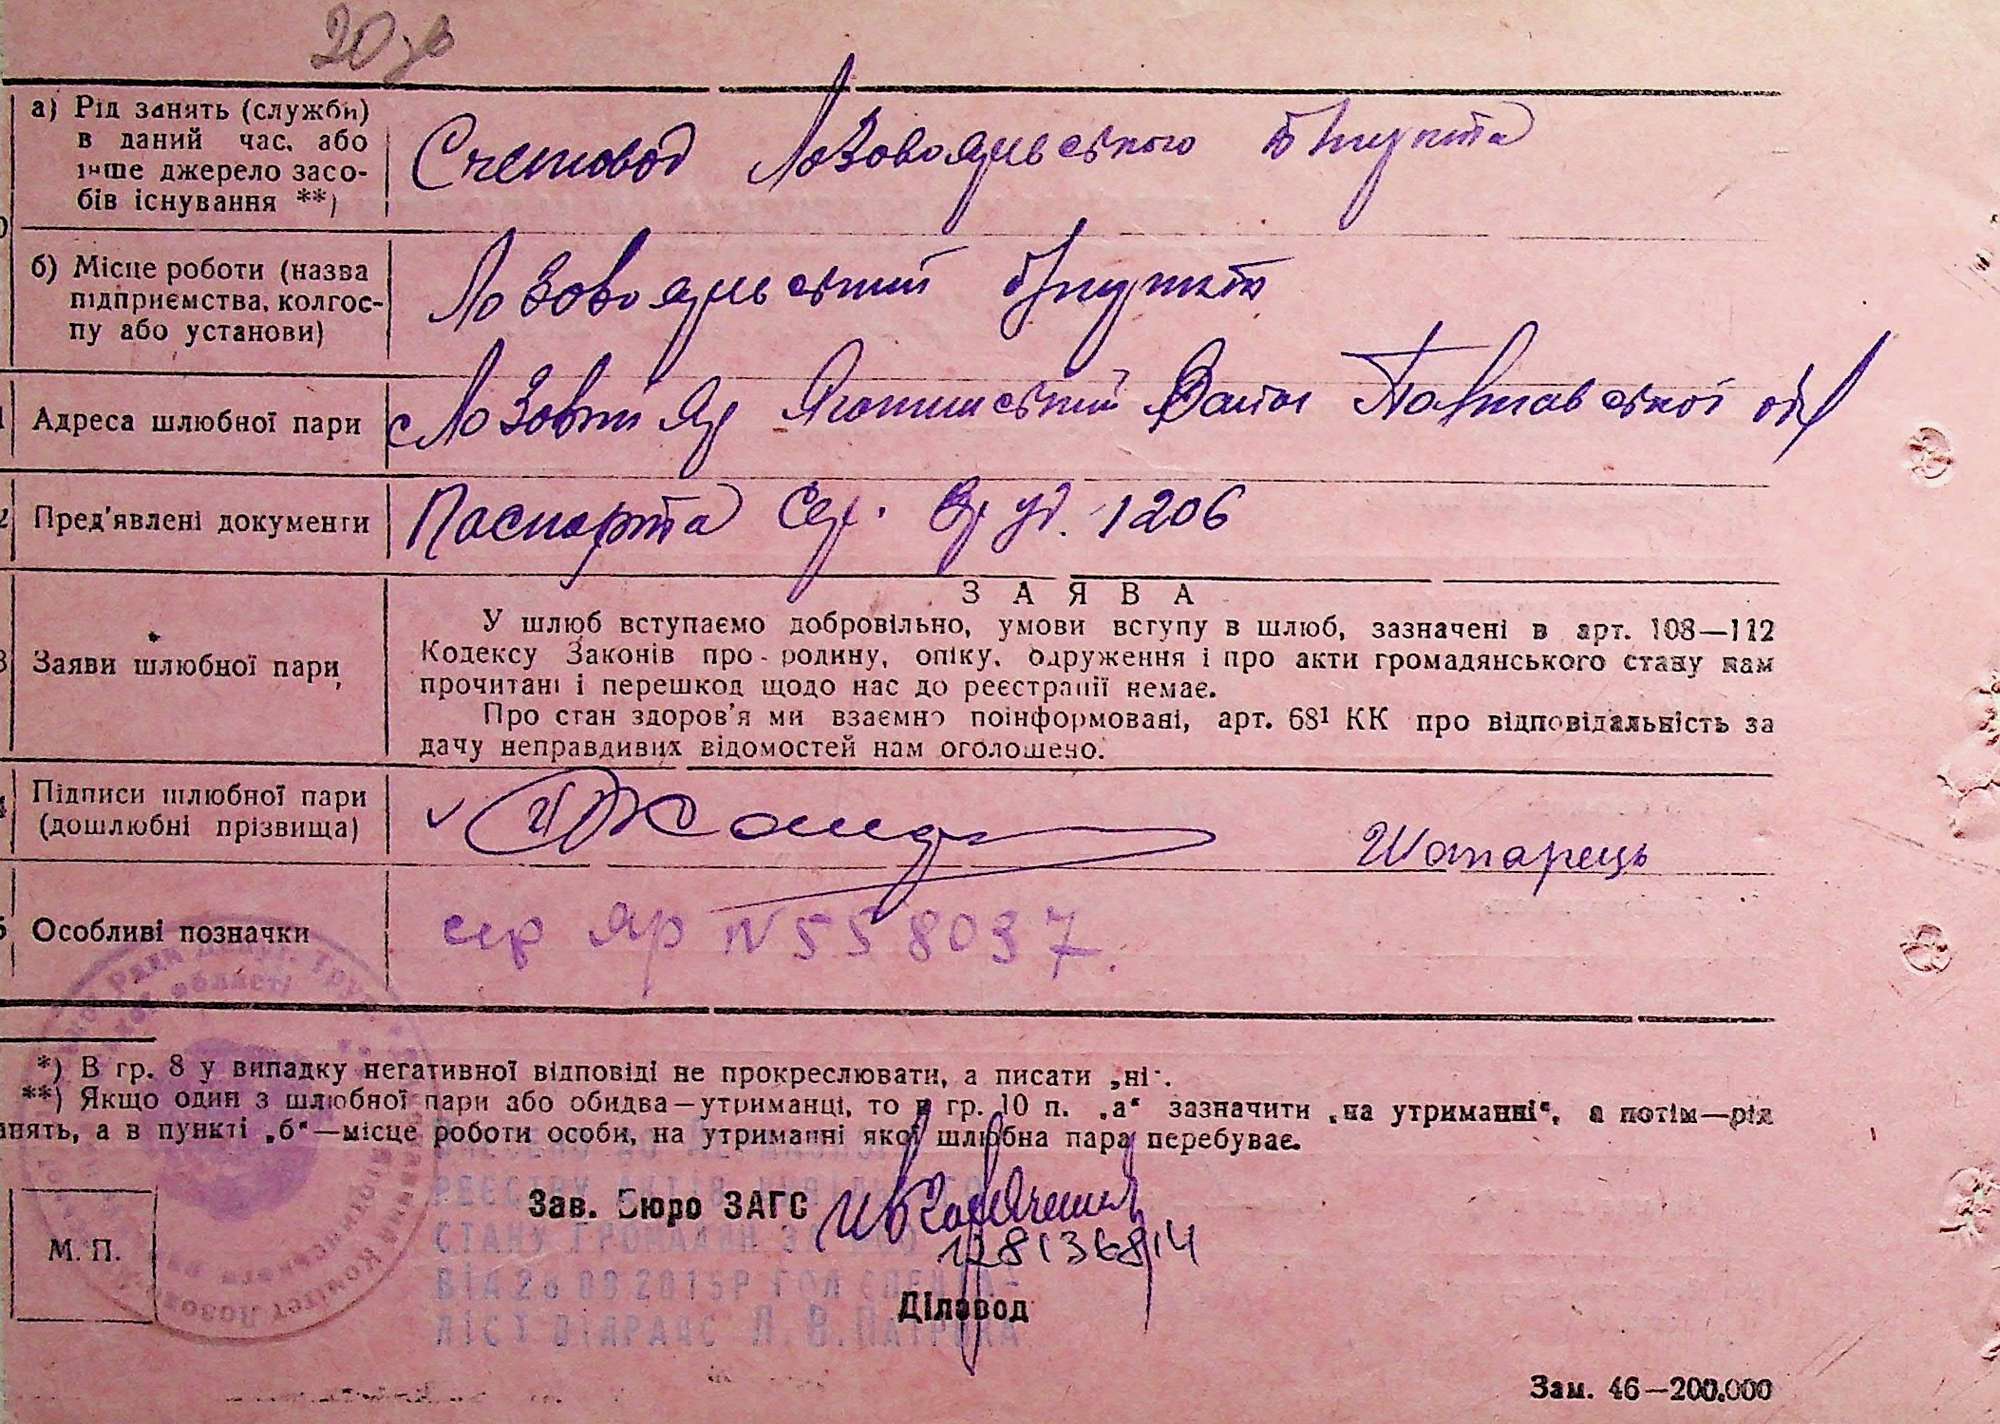 20
а) Рід занять (служби)
в даний час, або
інше джерело засо-
бів існування **)
Счетовод Лозовоярського
б) Місце роботи (назва
підприємства, колгос-
пу або установи)
Лозовоярський
Адреса шлюбної пари
с Лозовий Яр Яготинський Район Полтавської обл
Пред'явлені документи
Паспорта Сер. 1206
ЗАЯВА
Заяви шлюбної пари
У шлюб вступаємо добровільно, умови вступу в шлюб, зазначені в арт. 108—112
Кодексу Законів про родину, опіку, одруження і про акти громадянського стану нам
прочитані і перешкод щодо нас до реєстрації немає.
Про стан здоров'я ми взаємно поінформовані, арт. 68¹ КК про відповідальність за
дачу неправдивих відомостей нам оголошено.
Підписи шлюбної пари
(дошлюбні прізвища)
Шопарець
Особливі позначки
сер ЯР N 558037.
*) В гр. 8 у випадку негативної відповіді не прокреслювати, а писати „ні“.
**) Якщо один з шлюбної пари або обидва—утриманці, то в гр. 10 п. „а“ зазначити „на утриманні“, а потім—рід
анять, а в пункті „б“—місце роботи особи, на утриманні якої шлюбна пара перебуває.
РЕЄСТРУ АКТІВ
Зав. Бюро ЗАГС
СТАНУ ГРОМАДЯН
М. П.
Діловод
Зам. 46—200.000